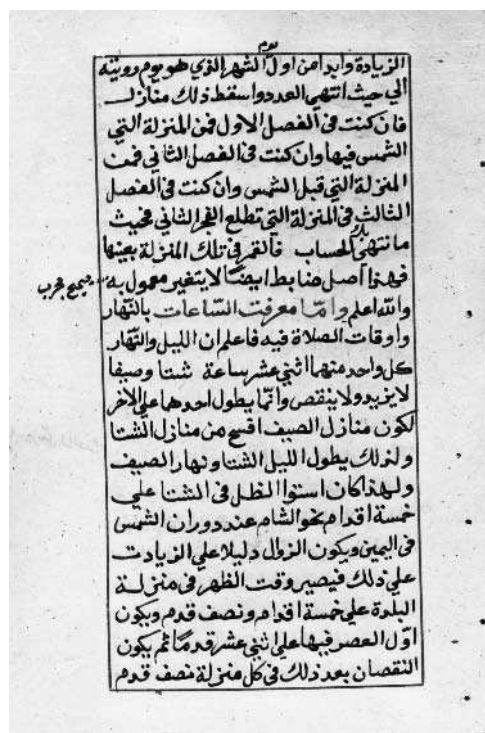 يوم
الزيادة وابدا من اول الشهر الذي هو يوم رويته
الي حيث انتهي العدد واسقط ذلك منازل
فان كنت في الفصل الاول فمن المنزلة التي
الشمس فيها وان كنت في الفصل الثاني فمن
المنزلة التي قبل الشمس وان كنت في الفصل
الثالث في المنزلة التي تطلع الفجر الثاني فحيث
ما انتهي بك الحساب فالقمر في تلك المنزلة بعينها
فهذا اصل ضابط ايضًا لا يتغير معمول به صحيح مجرب
والله اعلم وامّا معرفت السّاعات بالنّهار
واوقات الصلاة فيه فاعلم ان الليل والنّهار
كل واحد منهما اثني عشر ساعة شتا وصيفا
لا يزيد ولا ينقص وانّما يطول احدهما علي الاخر
لكون منازل الصيف افسح من منازل الشتا
ولذلك يطول الليل الشتا ونهار الصيف
ولهذا كان استوا الظل في الشتا علي
خمسة اقدام نحو الشام عند دوران الشمس
في اليمين ويكون الزوال دليلا علي الزيادت
علي ذلك فيصير وقت الظهر في منزلة
البلدة علي خمسة اقدام ونصف قدم ويكون
اوّل العصر فيها علي اثني عشر قدمًا ثم يكون
النقصان بعد ذلك في كل منزلة نصف قدم